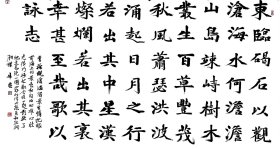 東臨碣石以觀
滄海水何澹澹
山島竦峙樹木
叢生百草豐茂
秋風蕭瑟洪波
涌起日月之行
若出其中星漢
燦爛若出其裏
幸甚至哉歌以
詠志